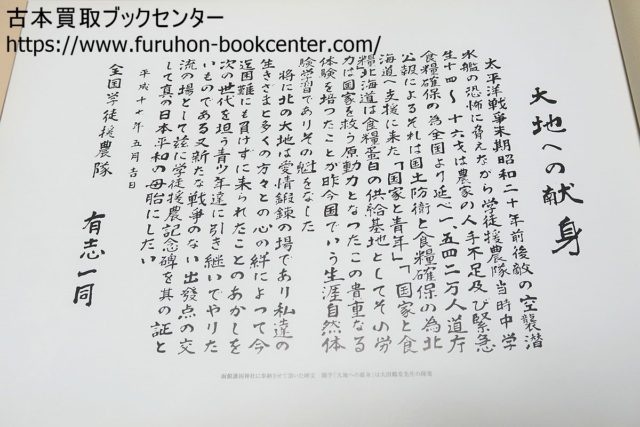 古本買取ブックセンター
https://www.furuhon-bookcenter.com/
大地への献身
太平洋戦争末期昭和二十年前後敵の空襲潜
水艦の恐怖に脅えながら学徒援農隊当時中学
生十四～十六才は農家の人手不足及び緊急
食糧確保の為全国より延べ一、五四二万人道庁
公報によるそれは国土防衛と食糧確保の為北
海道へ支援に来た「国家と青年」「国家と食
糧」北海道は食糧蛋白の供給基地としてその労
力は国家を救う原動力となったこの貴重なる
体験を培ったことが昨今国でいう生涯自然体
験学習でありその魁をなした
将に北の大地は愛情鍛錬の場であり私達の
生きざまと多くの方々との心の絆によって今
迄困難にも負けずに来られたことのあかしを
次の世代を担う青少年達に引き継いでやりた
いものである又新たな戦争のない出発点の交
流の場として茲に学徒援農記念碑を其の証と
して真の日本平和の母胎にしたい
平成十七年五月吉日
全国学徒援農隊
有志一同
函館護国神社に奉納させて頂いた碑文 題字「大地への献身」は太田鶴堂先生の揮毫